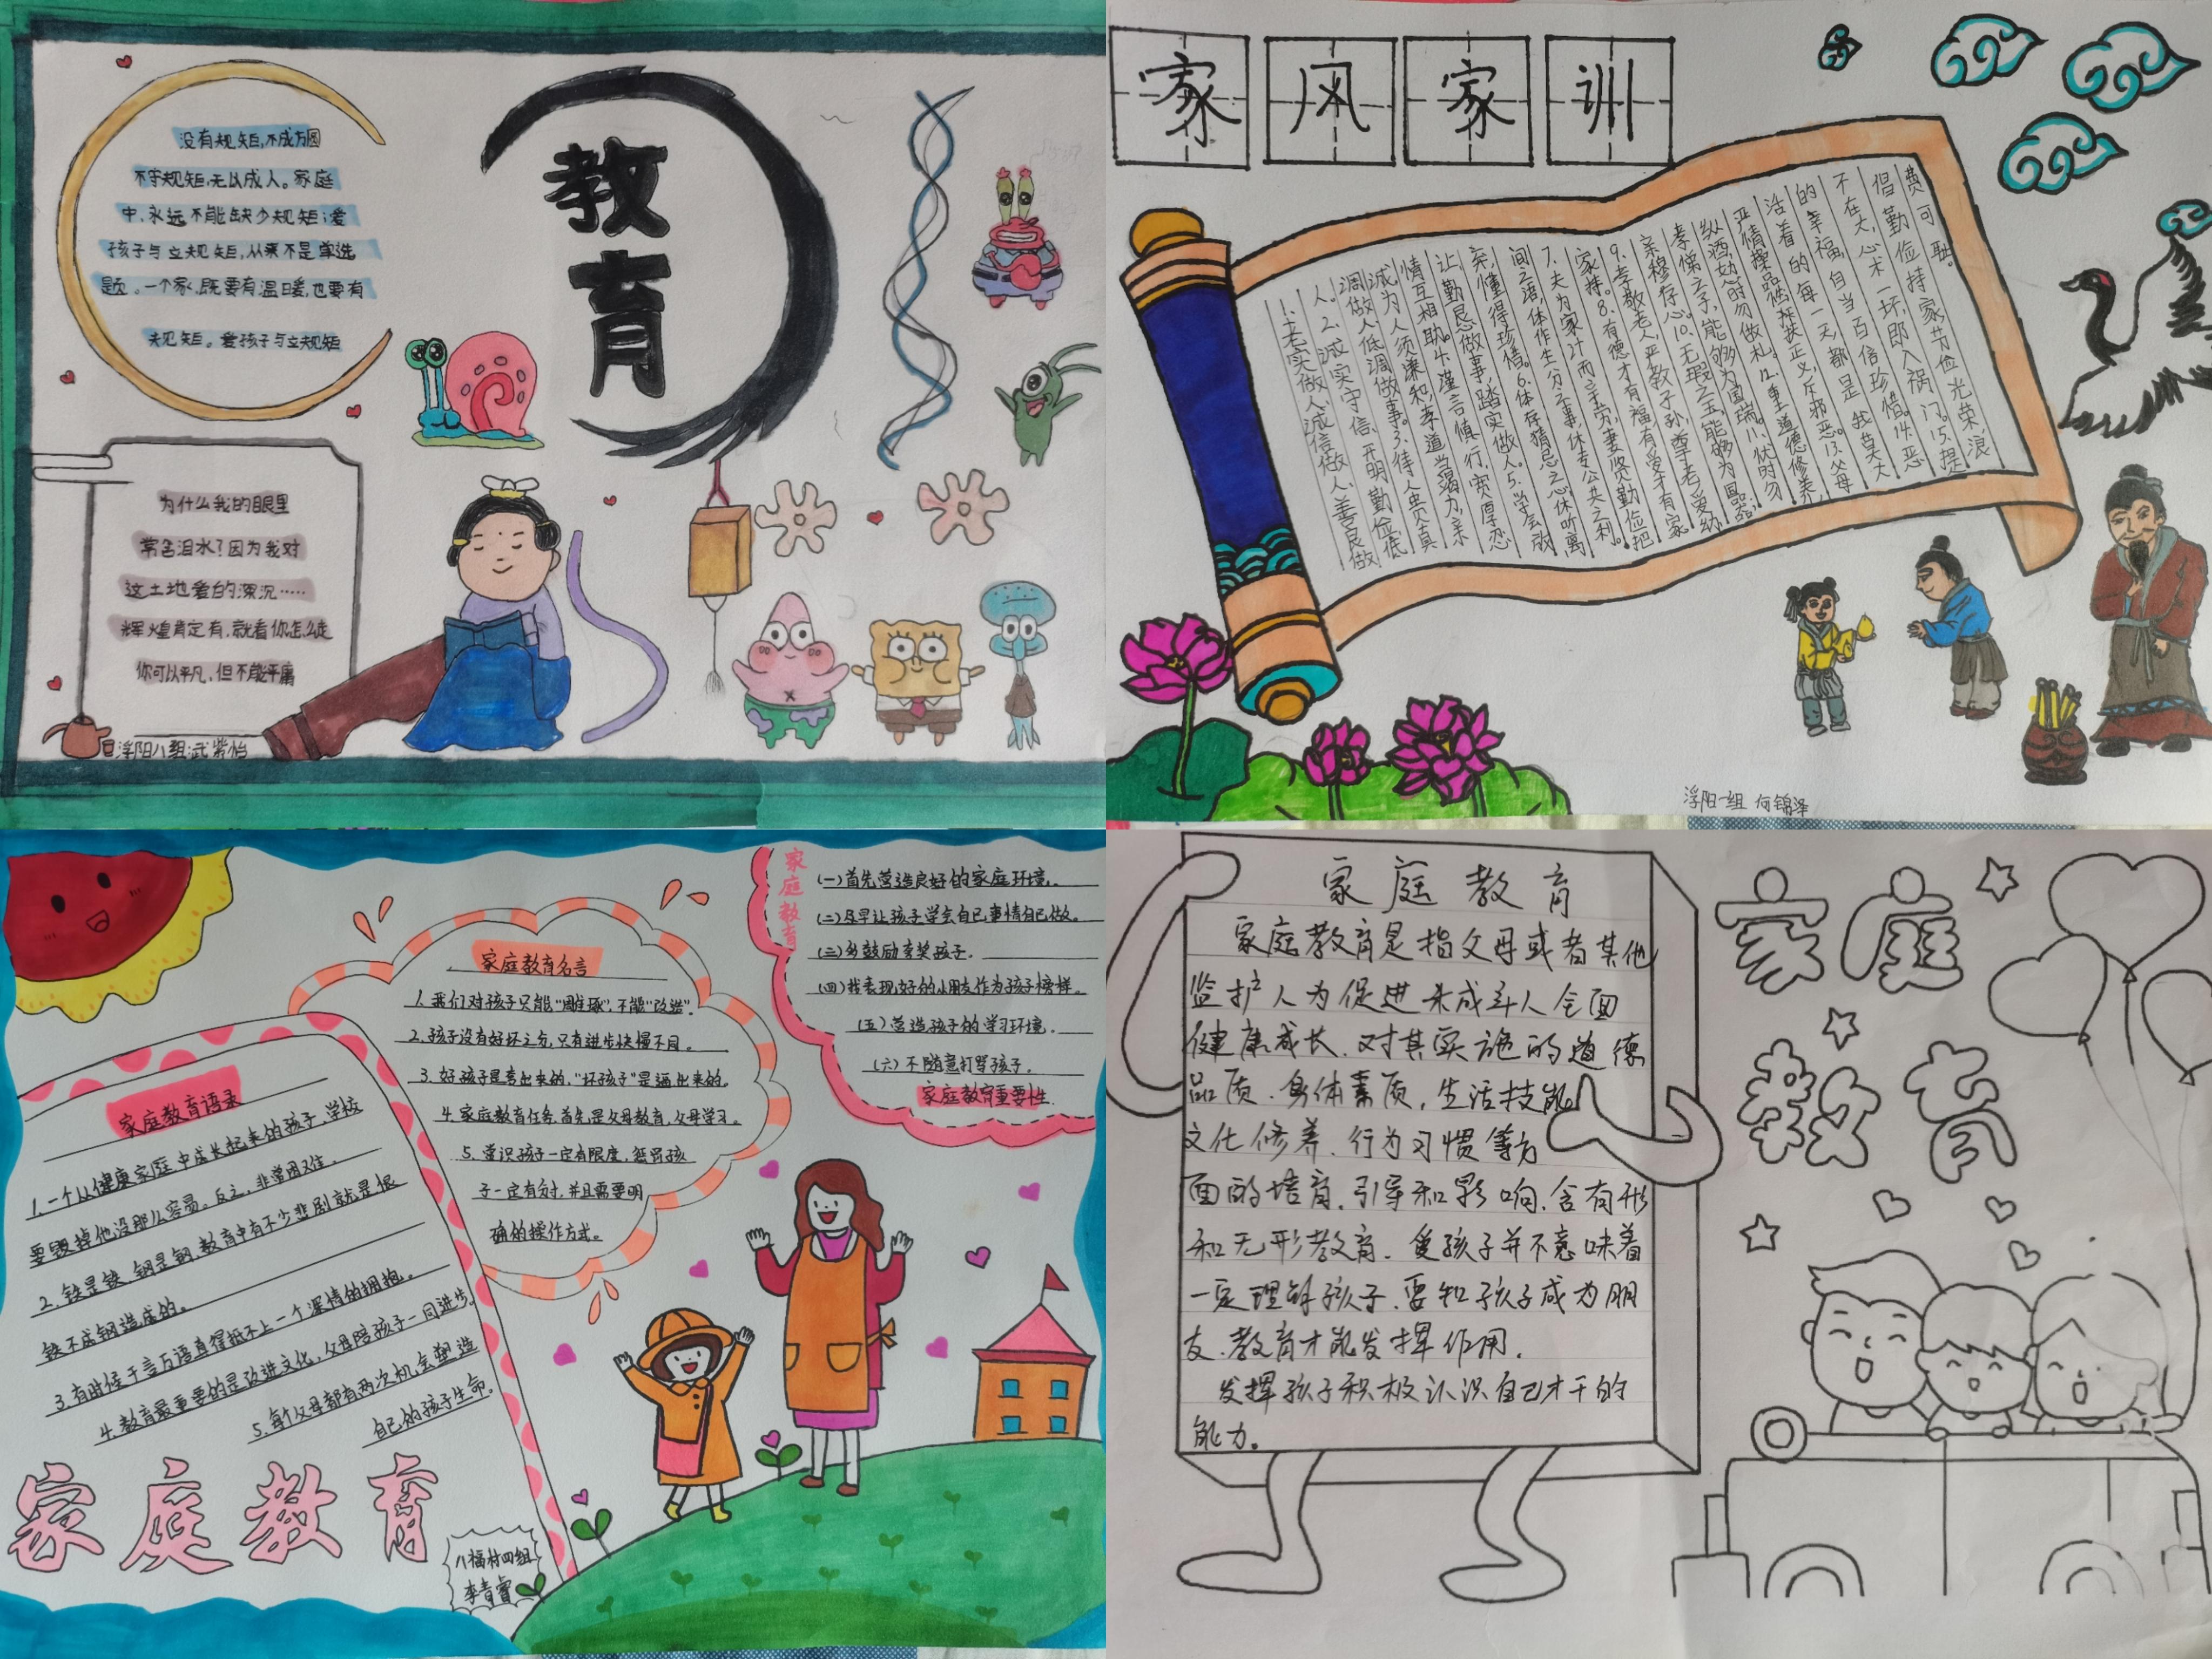 没有规矩,不成方圆
不守规矩,无以成人。家庭
中,永远不能缺少规矩;爱
孩子与立规矩,从来不是单选
题。一个家,既要有温暖,也要有
规矩。爱孩子与立规矩
教
育
为什么我的眼里
常含泪水?因为我对
这土地爱的深沉……
辉煌肯定有,就看你怎么走
你可以平凡,但不能平庸
浮阳八组:武紫怡
家风家训
费可耻。
倡勤俭持家节俭光荣,浪
不在大,心术一坏,即入祸门。15.提
的幸福,自当百倍珍惜。14.恶
活着的每一天都是我莫大
严情操品性,扶正义,斥邪恶。13.父母
纵酒,劝时勿做礼。12.重道德修养,
孝悌之子,能够为国瑞。11.忧时勿
亲穆存心。10.无瑕之玉,能够为国器;
9.孝敬老人,严教子孙,尊老爱幼
家择。8.有德才有福,有爱才有家
7.夫为家计而主穷,妻贤勤俭把
间之语,休作生分之事,休专公共之利。
弃,懂得珍惜。6.休存猜忌之心,休听离
让,勤恳做事,踏实做人。5.学会放
情互相助。4.谨言慎行,宽厚忍
诚,为人须谦和,孝道当竭力,亲
调做人低调做事。3.待人贵真
人。2.诚实守信、开明勤俭、低
1.老实做人、诚信做人、善良做
浮阳一组 何锦泽
家庭教育语录
1.一个从健康家庭中成长起来的孩子,学校
要毁掉他没那么容易。反之,非常困难。
2.铁是铁,钢是钢,教育中有不少悲剧就是恨
铁不成钢造成的。
3.有时候千言万语真得抵不上一个深情的拥抱。
4.教育最重要的是改进文化,父母陪孩子一同进步。
5.每个父母都有两次机会塑造
自己的孩子生命。
家庭教育
八福村四组
李青睿
家庭教育名言
1.我们对孩子只能“雕琢”,不能“改造”。
2.孩子没有好坏之分,只有进步快慢不同。
3.好孩子是夸出来的,“坏孩子”是逼出来的。
4.家庭教育任务,首先是父母教育,父母学习。
5.赏识孩子一定有限度,惩罚孩
子一定有方寸,并且需要明
确的操作方式。
家庭教育
(一)首先营造良好的家庭环境。
(二)尽早让孩子学会自己事情自己做。
(三)多鼓励夸奖孩子。
(四)找表现好的小朋友作为孩子榜样。
(五)营造孩子的学习环境。
(六)不随意打骂孩子。
家庭教育重要性
家庭教育
家庭教育是指父母或者其他
监护人为促进未成年人全面
健康成长,对其实施的道德
品质、身体素质,生活技能
文化修养、行为习惯等方
面的培育、引导和影响,含有形
和无形教育。爱孩子并不意味着
一定理解孩子,要和孩子成为朋
友,教育才能发挥作用。
发挥孩子积极认识自己才干的
能力。
家庭
教育